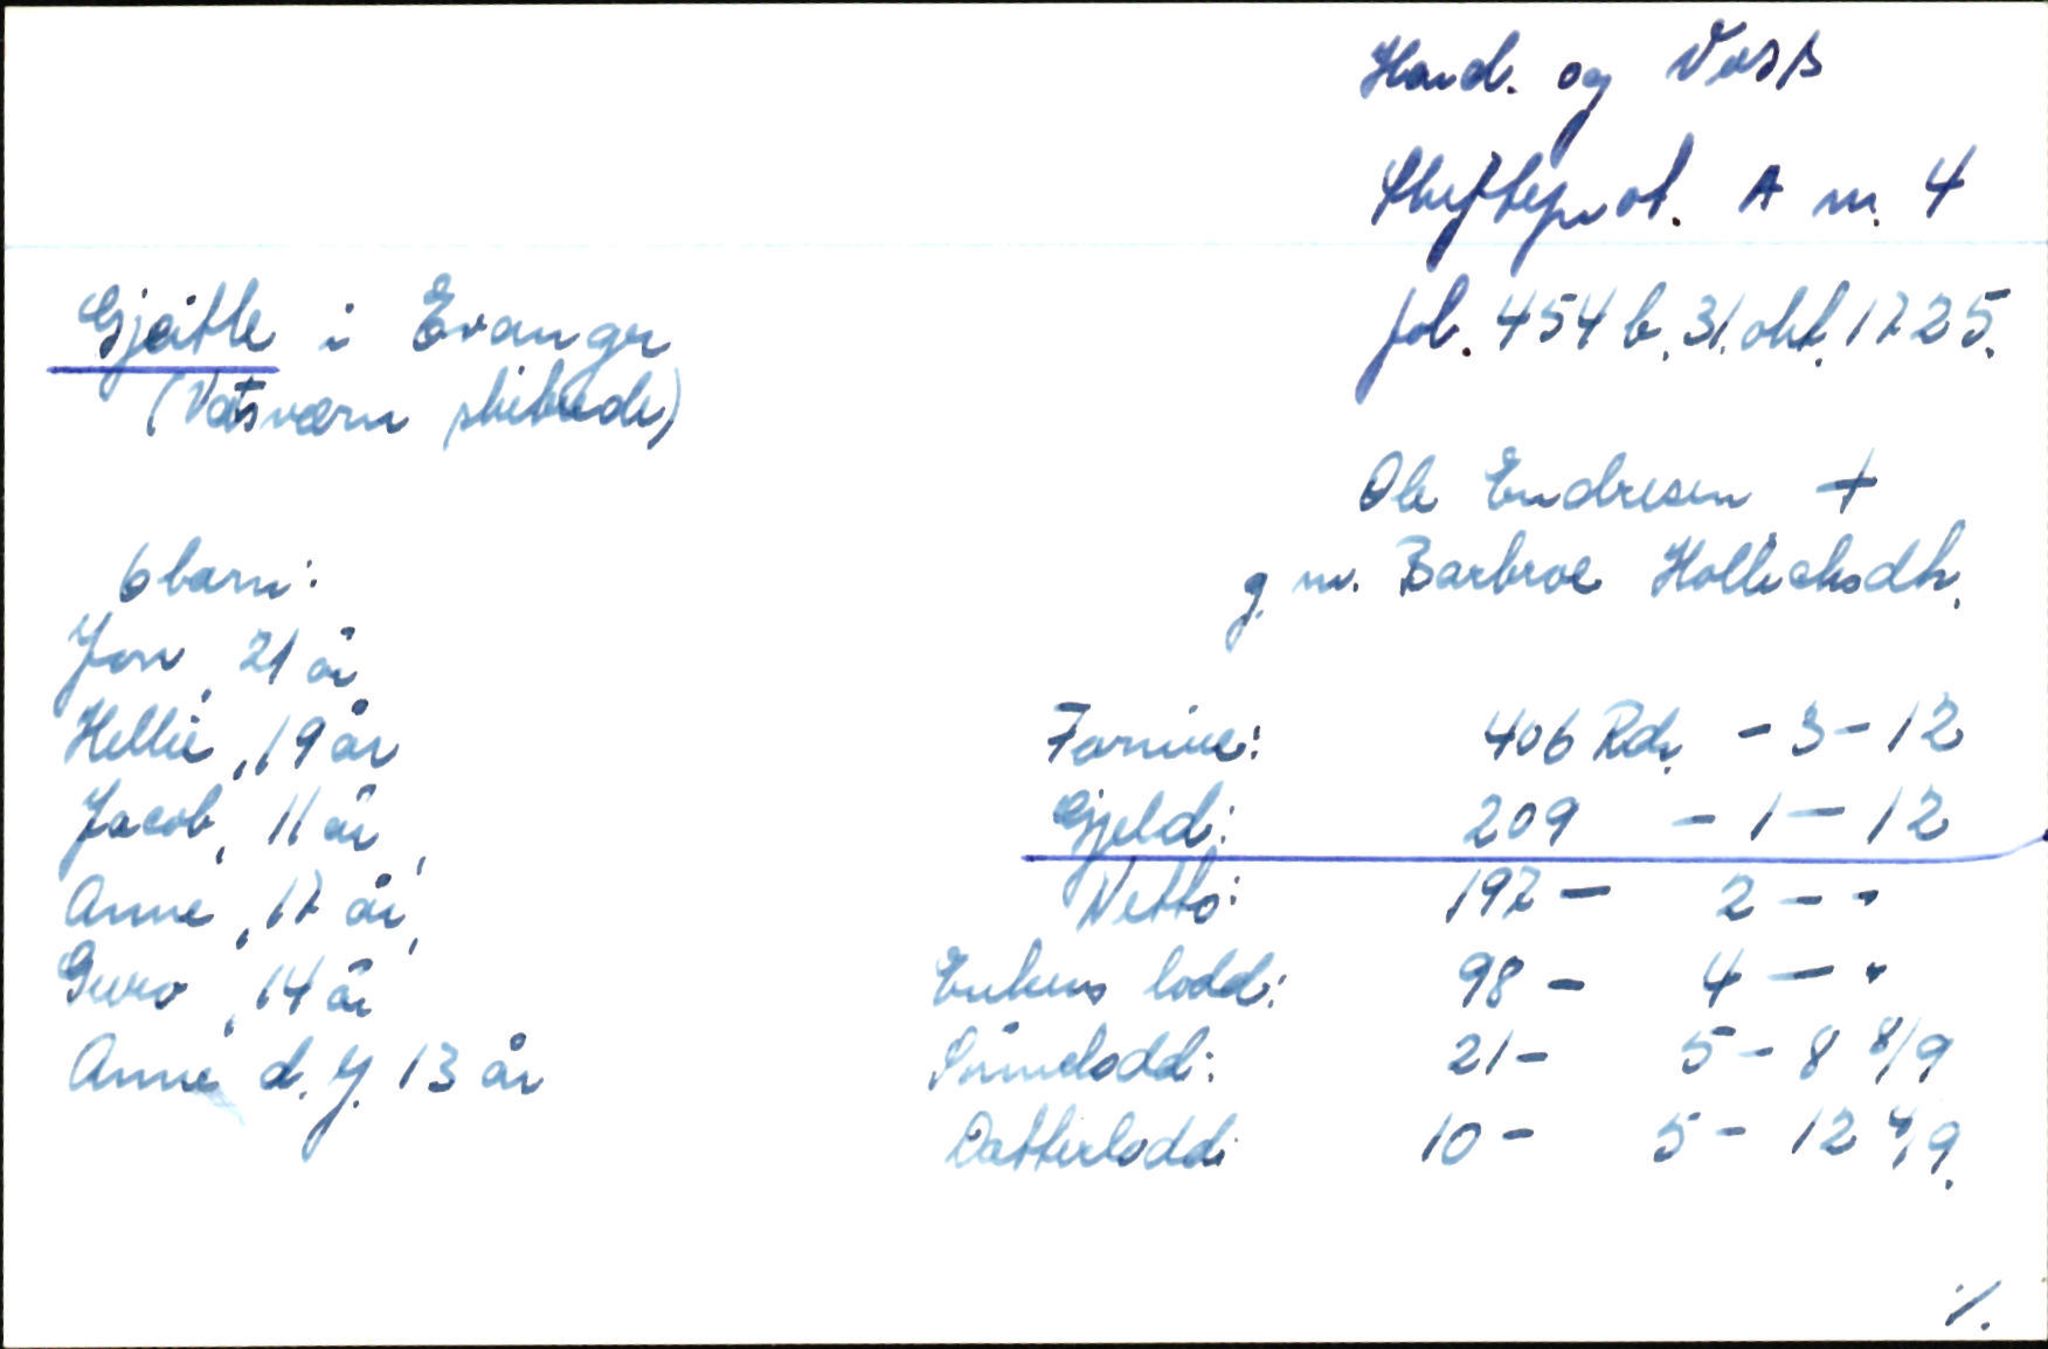 Hard. og Voss
Skifteprot. A nr. 4
fol. 454 b, 31. okt. 1725.
Gjeitle i Evanger
(Vatsværn skibrede)
Ole Endresen +
g. m. Barbroe Hollicksdtr.
6 barn:
Jon, 21 år,
Hellie, 19 år
Jacob, 11 år,
Anne, 17 år,
Guro, 14 år
Anne d. y. 13 år
Formue: 406 Rdr. - 3 - 12
Gjeld: 209 - 1 - 12
Netto: 197 - 2 - -
Enkens lodd: 98 - 4 - -
Sønnelodd: 21 - 5 - 8 8/9
Datterlodd: 10 - 5 - 12 4/9.